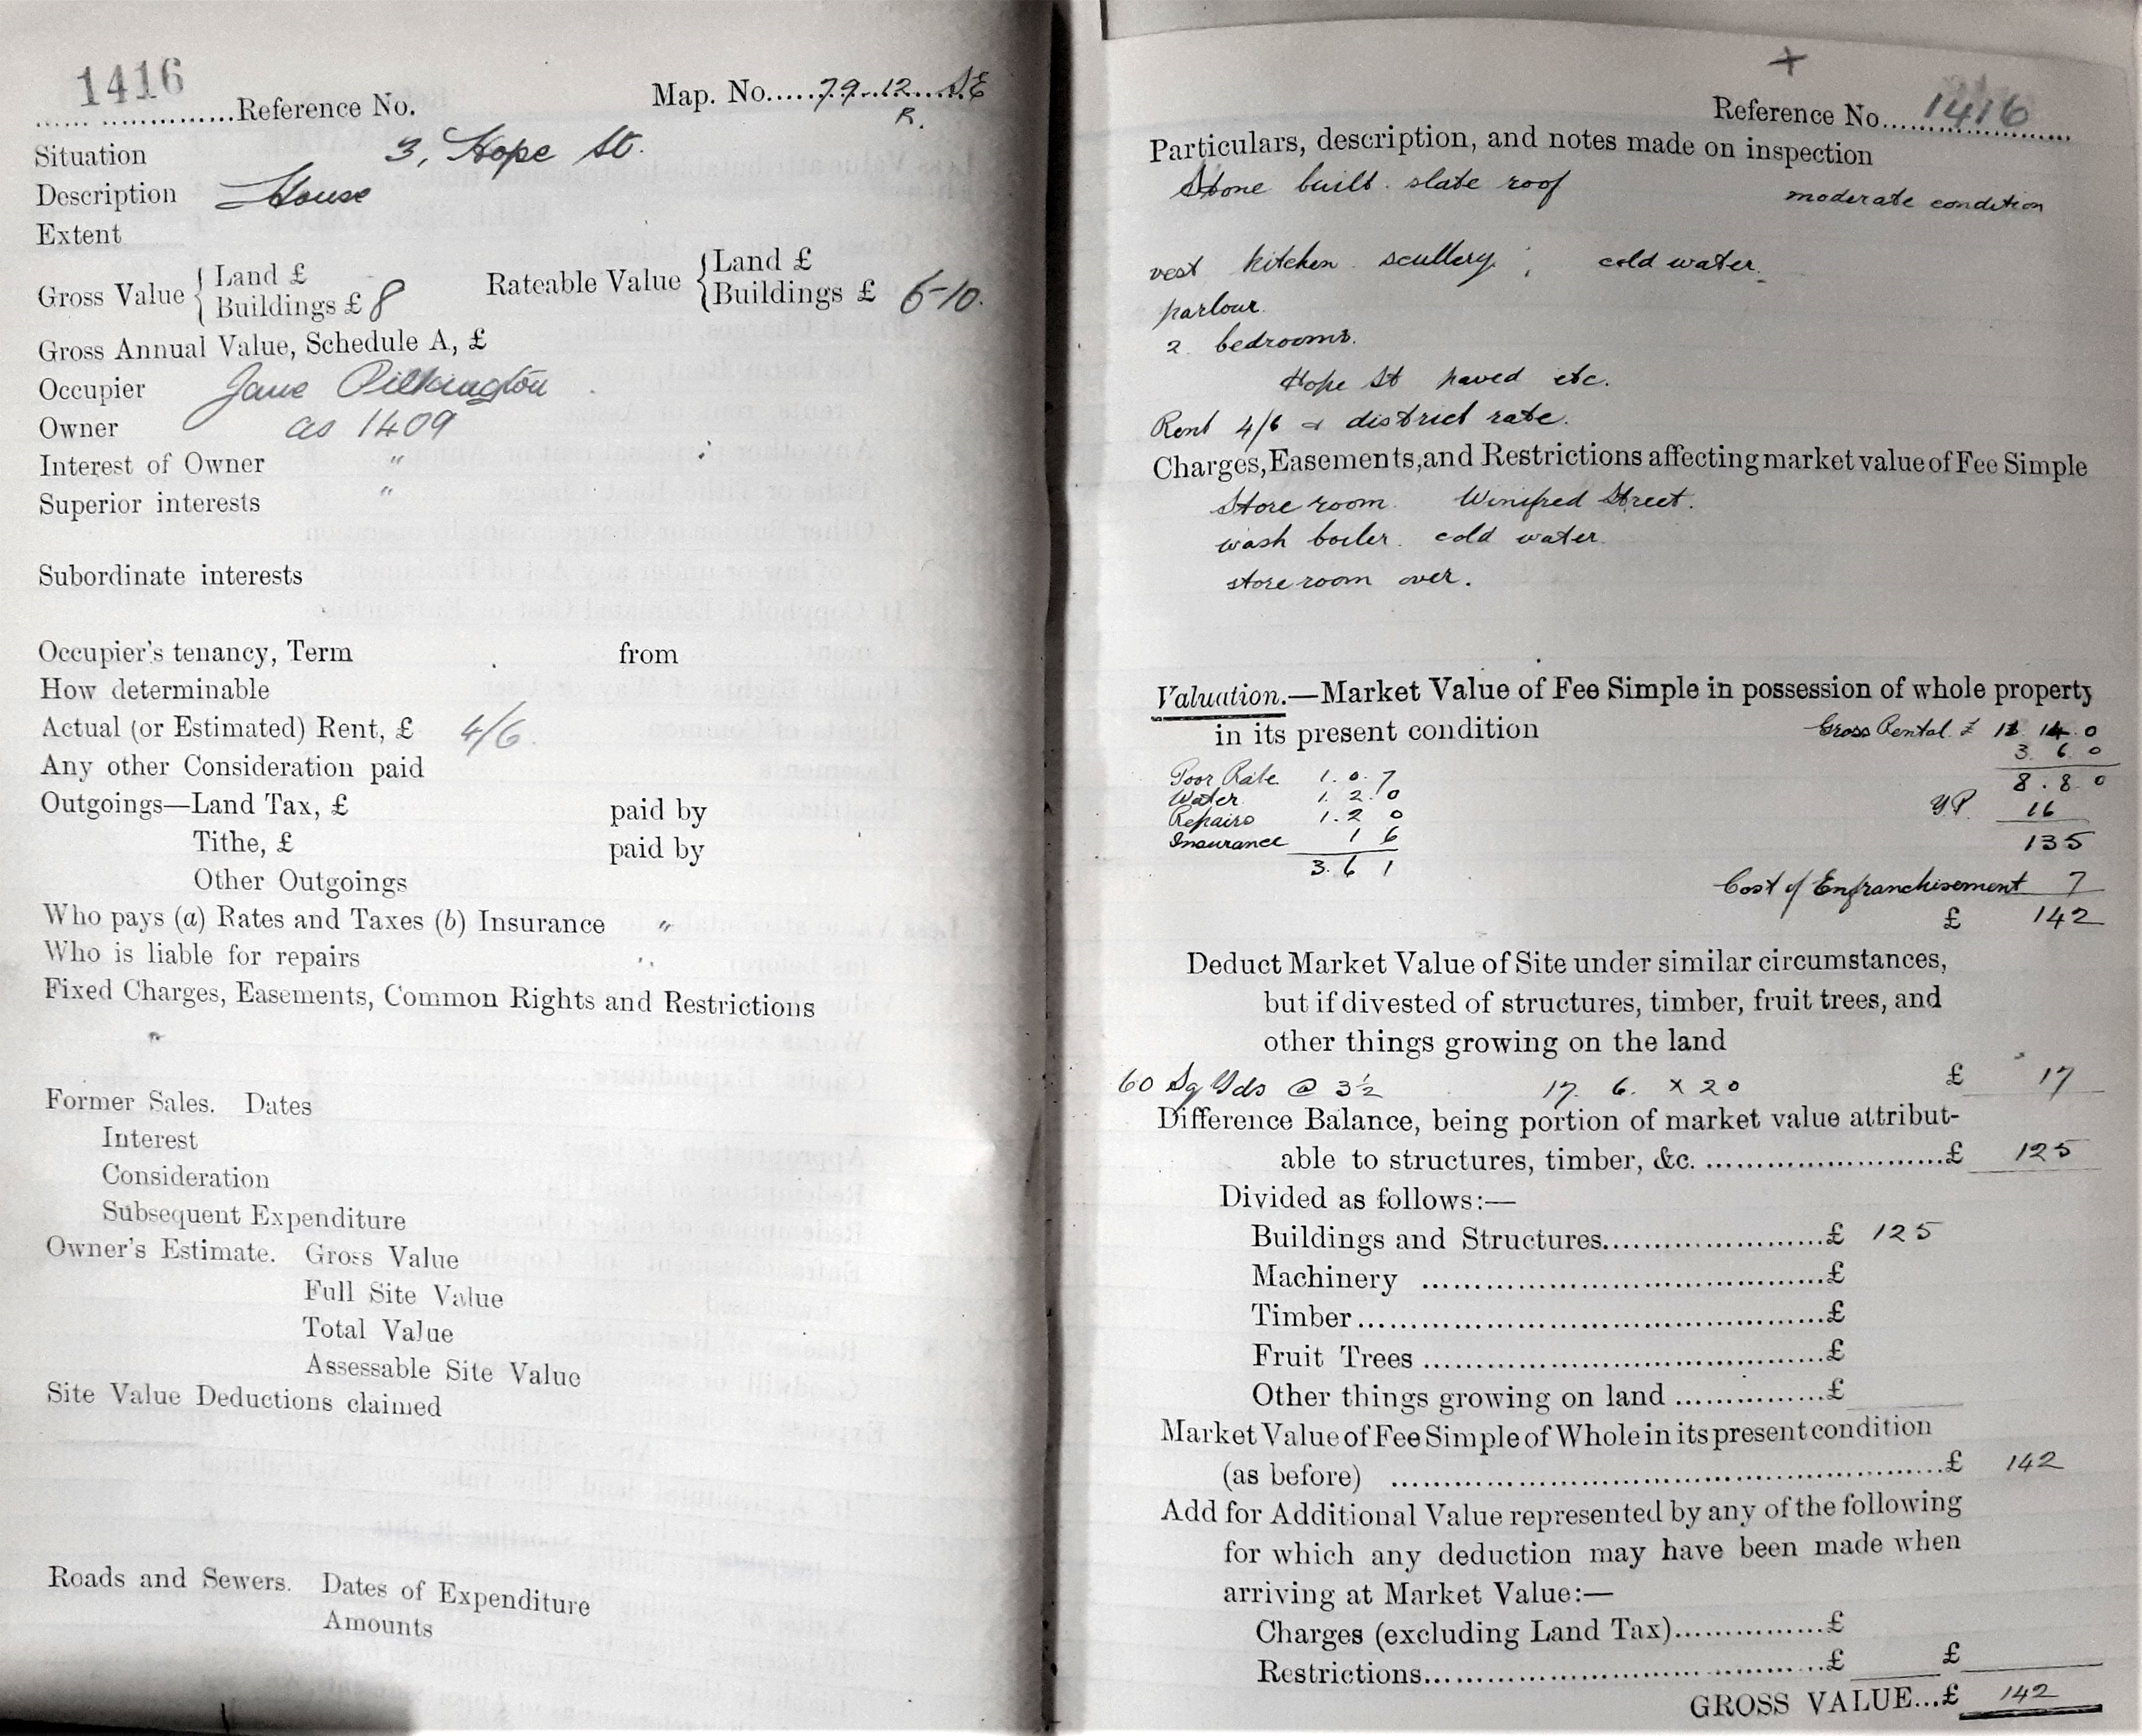 1416
Reference No.
Map. No. 79.12 S.E
R.
Situation 3, Hope St.
Description House
Extent
Gross Value { Land £
Buildings £ 8
Rateable Value { Land £
Buildings £ 6-10.
Gross Annual Value, Schedule A, £
Occupier Jane Pilkington
Owner as 1409
Interest of Owner "
Superior interests "
Subordinate interests
Occupier's tenancy, Term from
How determinable
Actual (or Estimated) Rent, £ 4/6.
Any other Consideration paid
Outgoings—Land Tax, £ paid by
Tithe, £ paid by
Other Outgoings
Who pays (a) Rates and Taxes (b) Insurance "
Who is liable for repairs "
Fixed Charges, Easements, Common Rights and Restrictions
"
Former Sales. Dates
Interest
Consideration
Subsequent Expenditure
Owner's Estimate. Gross Value
Full Site Value
Total Value
Assessable Site Value
Site Value Deductions claimed
Roads and Sewers. Dates of Expenditure
Amounts
Reference No. 1416
Particulars, description, and notes made on inspection
Stone built. slate roof moderate condition
vest kitchen scullery ; cold water.
parlour.
2 bedrooms.
Hope St paved etc.
Rent 4/6 & district rate.
Charges, Easements, and Restrictions affecting market value of Fee Simple
Store room. Winifred Street.
wash boiler. cold water.
store room over.
Valuation.—Market Value of Fee Simple in possession of whole property
in its present condition Gross Rental £ 11 14 0
3. 6 0
Poor Rate 1. 0. 7 8. 8 0
Water 1. 2. 0 YP. 16
Repairs 1. 2 0
Insurance 1 6 135
3. 6 1
Cost of Enfranchisement 7
£ 142
Deduct Market Value of Site under similar circumstances,
but if divested of structures, timber, fruit trees, and
other things growing on the land
60 Sq Yds @ 3½ 17. 6. x 20 £ 17
Difference Balance, being portion of market value attribut-
able to structures, timber, &c. £ 125
Divided as follows:—
Buildings and Structures £ 125
Machinery £
Timber £
Fruit Trees £
Other things growing on land £
Market Value of Fee Simple of Whole in its present condition
(as before) £ 142
Add for Additional Value represented by any of the following
for which any deduction may have been made when
arriving at Market Value:—
Charges (excluding Land Tax) £
Restrictions £ £
GROSS VALUE...£ 142